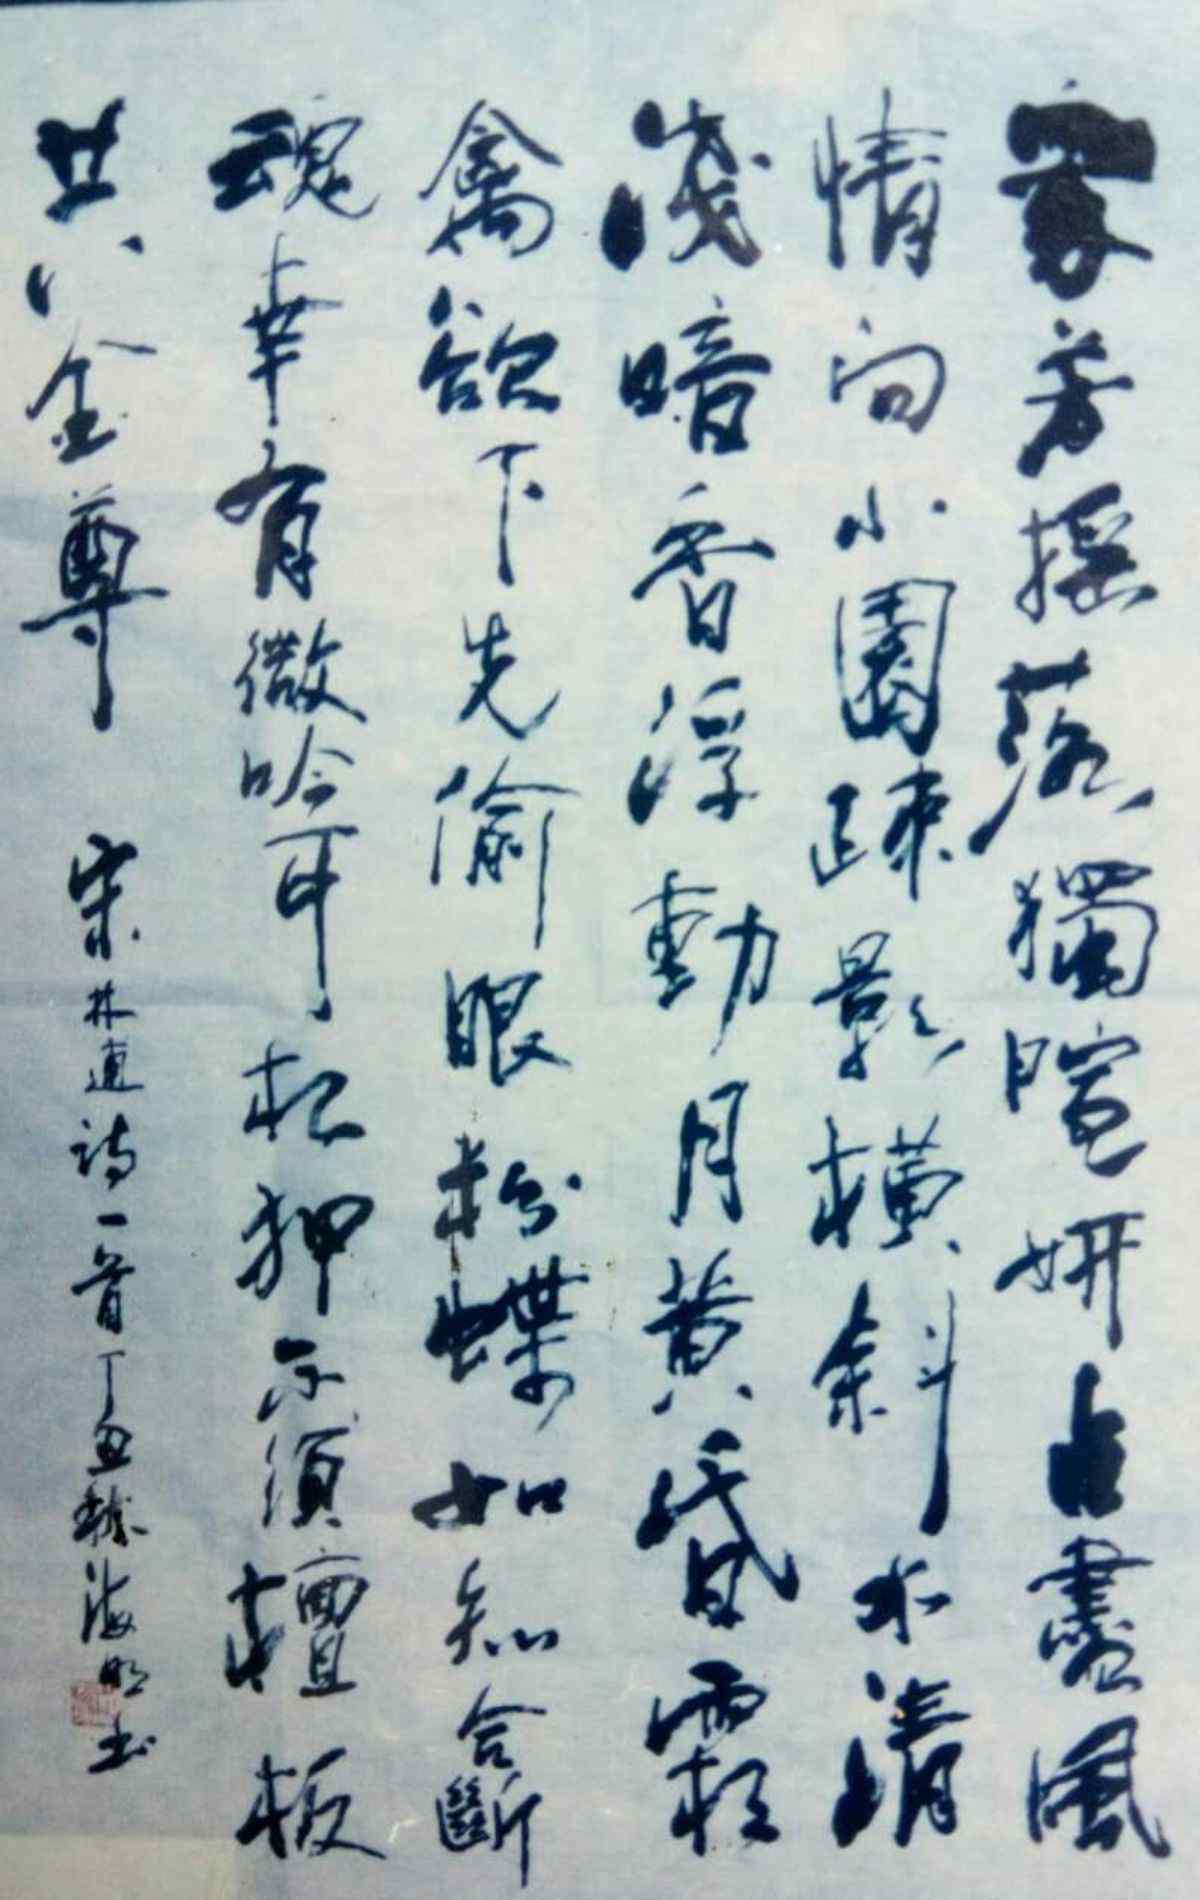 衆芳摇落獨暄妍占盡風
情向小園疎影橫斜水清
淺暗香浮動月黃昏霜
禽欲下先偷眼粉蝶如知合斷
魂幸有微吟可相狎不須檀板
共金尊
宋林逋詩一首丁丑秋海明书